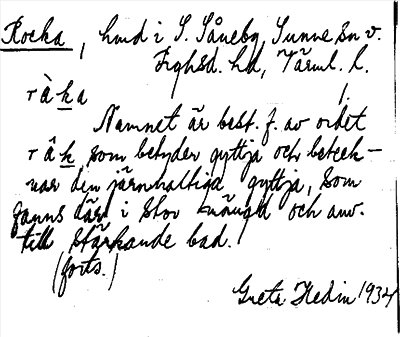 Rocka, hmd i S. Såneby, Sunne sn v.
Frghsd. hd, Värml. l.
ràka !.
Namnet är best. f. av ordet
råk som betyder gyttja och beteck-
nar den järnhaltiga gyttja, som
fanns där i stor mängd och anv.
till stärkande bad.
(forts.)
Greta Hedin 1934